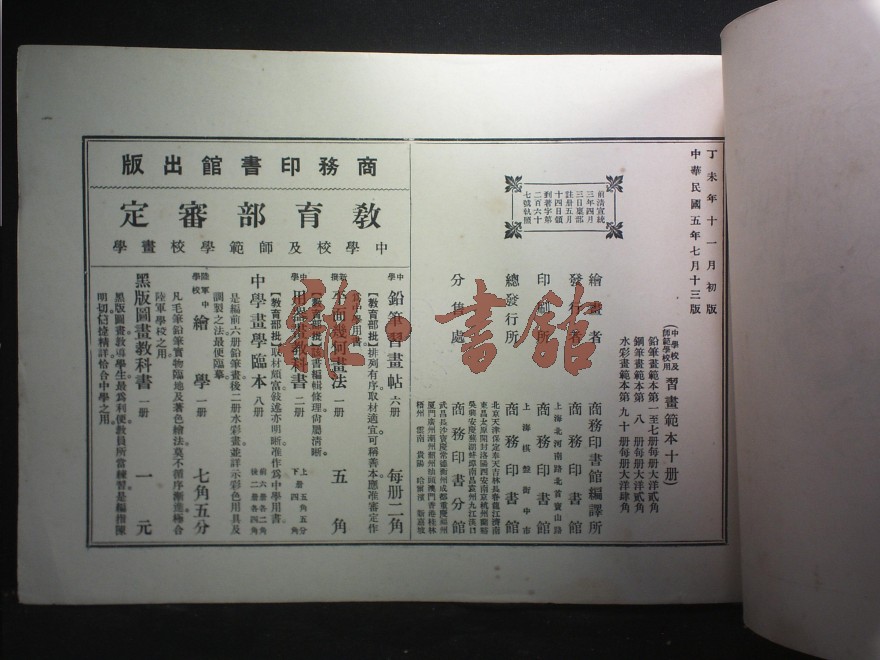 丁未年十一月初版
中華民國五年七月十三版
(中學校及師範學校用 習畫範本十册)
鉛筆畫範本第一至七册每册大洋貳角
鋼筆畫範本第八册每册大洋貳角
水彩畫範本第九十册每册大洋肆角
前清宣統
三年四月
三日稟部
註册五月
十四日領
到著字第
二百六十
七號執照
繪畫者 商務印書館編譯所
發行者 商務印書館
上海北河南路北首寶山路
印刷所 商務印書館
上海棋盤街中市
總發行所 商務印書館
分售處 商務印書分館
北京天津保定奉天吉林長春龍江濟南
東昌太原開封洛陽西安南京杭州蘭谿
吳興安慶蕪湖蚌埠南昌袁州九江漢口
武昌長沙寶慶常德衡州成都重慶福州
廈門廣州潮州韶州汕頭澳門香港桂林
梧州 雲南 貴陽 哈爾濱 新嘉坡
商務印書館出版
教育部審定
中學校及師範學校畫學
中學 鉛筆習畫帖 六册 每册二角
【教育部批】排列有序。取材適宜。可稱善本。應准審定作
爲中學用書。
新撰 平面幾何畫法 一册 五角
【教育部批】該書編輯條理尙屬淸晰。
中學 用器畫教科書 二册 上册五角五分 下册四角
【教育部批】取材頗富。敍述亦明晰。准作爲中學用書。
中學畫學臨本 八册 前六册各二角 後二册各四角
是編前六册鉛筆畫。後二册水彩畫。並詳示彩色用具及
調製之法。最便臨摹
陸軍中學校 繪學 一册 七角五分
凡毛筆鉛筆實物臨地及著色繪法。莫不循序漸進。極合
陸軍學校之用
黑版圖畫教科書 一册 一元
黑版圖畫。教導學生。最爲利便。教員所當練習。是編指陳
明切。恰合中學之用。
雜·書館